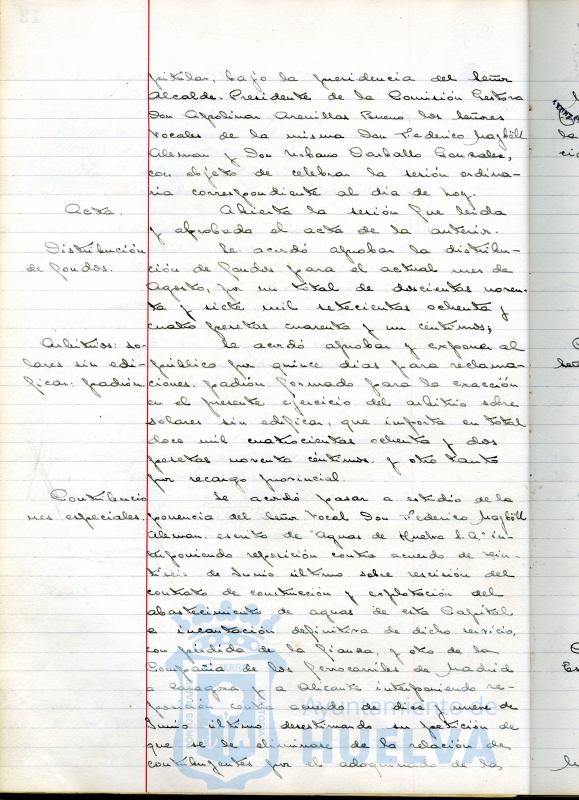 pitular, bajo la presidencia del Señor
Alcalde-Presidente de la Comisión Gestora
Don Apolinar Arenillas Bueno, los Señores
Vocales de la misma Don Federico
Aleman y Don Urbano Carballo Gonzalez,
con objeto de celebrar la sesión ordina-
ria correspondiente al dia de hoy.
Acta.
Abierta la sesión fue leida
y aprobada el acta de la anterior.
Distribución
de fondos.
Se acordó aprobar la distribu-
ción de fondos para el actual mes de
Agosto, por un total de doscientas noven-
ta y siete mil setecientas ochenta y
cuatro pesetas cuarenta y un céntimos,
Arbitrios: so-
lares sin edi-
ficar: padrón.
Se acordó aprobar y exponer al
público por quince dias para reclama-
ciones, padrón formado para la exacción
en el presente ejercicio del arbitrio sobre
solares sin edificar, que importa en total
doce mil cuatrocientas ochenta y dos
pesetas noventa céntimos, y otro tanto
por recargo provincial.
Contribucio
nes especiales.
Se acordó pasar a estudio de la
ponencia del Señor Vocal Don Federico
Aleman, escrito de "Aguas de Huelva S.A." in-
terponiendo reposición contra acuerdo de vein-
tiseis de Junio último sobre rescisión del
contrato de construcción y explotación del
abastecimiento de aguas de esta Capital
e incautación definitiva de dicho servicio,
con pérdida de la fianza, y otro de la
Compañia de los ferrocarriles de Madrid
a Zaragoza y a Alicante interponiendo re-
posición contra acuerdo de diez y nueve de
Junio último desestimando su petición de
que se le eliminase de la relación de
contribuyentes por el adoquinado de la
Ayuntamiento de
HUELVA